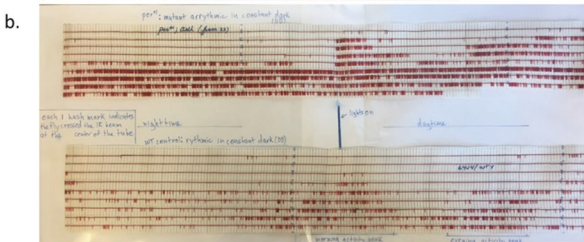 b.
per⁰¹; mutant arrythmic in constant dark
(DD)
per⁰¹; dark (from
each 1 hash mark indicates
the fly crossed the IR beam
at the center of the tube
night time
← lights on
daytime
WT control: rythmic in constant dark (DD)
morning activity peak
evening activity peak